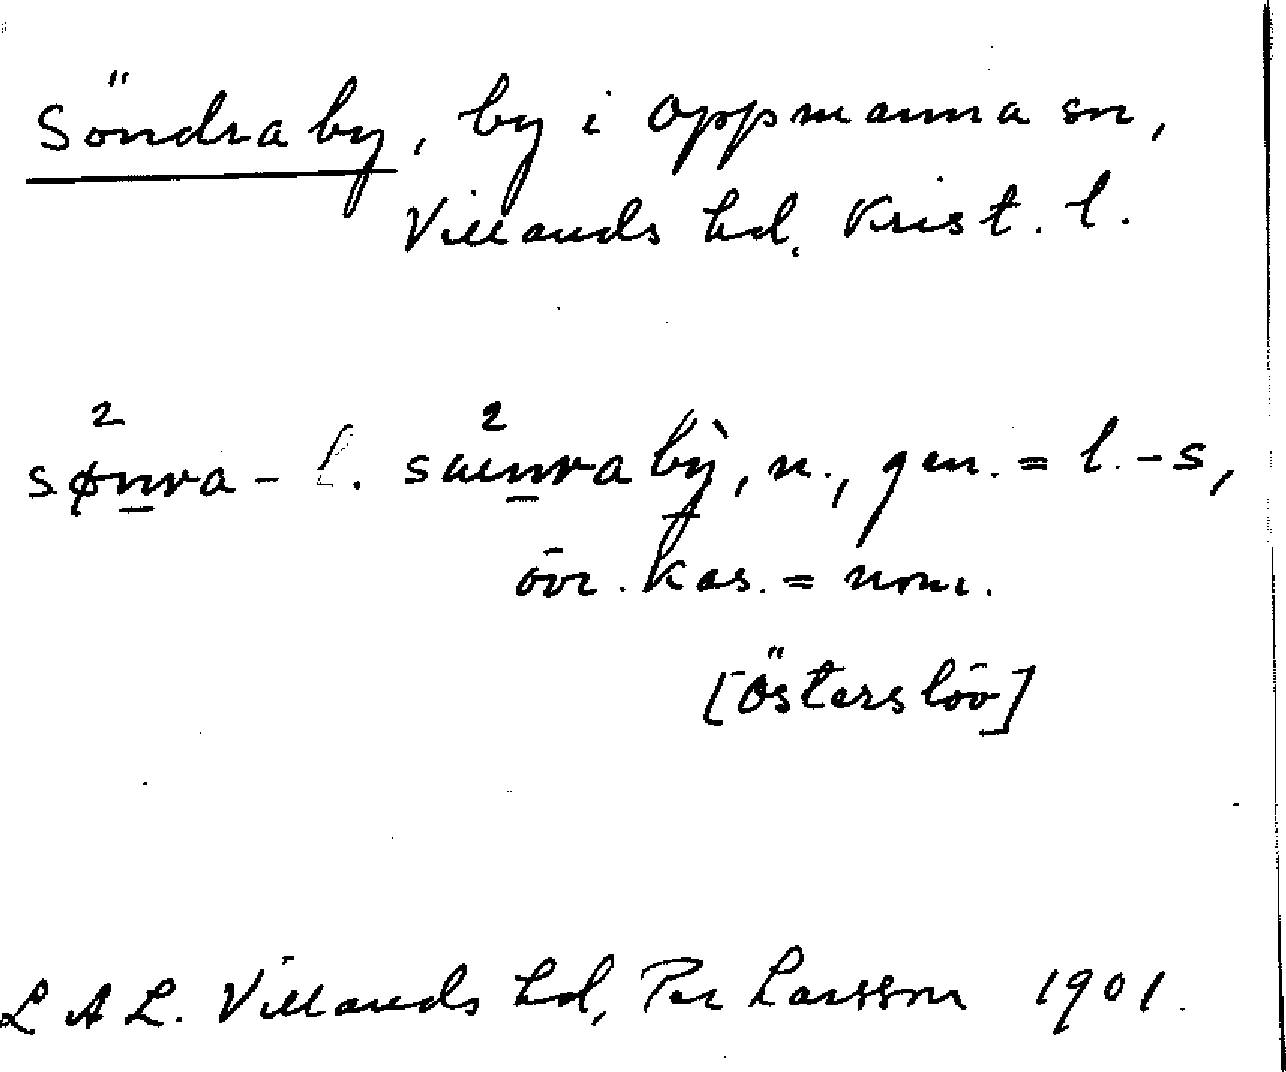 Söndraby, by i Oppmanna sn,
Villands hd. Krist. l.
sø²n̲ra- l. sæ²n̲rabỳ, n., gen. = l. -s,
övr. kas. = nom.
[Österslöv]
LAL. Villands hd, Per Larsson 1901.